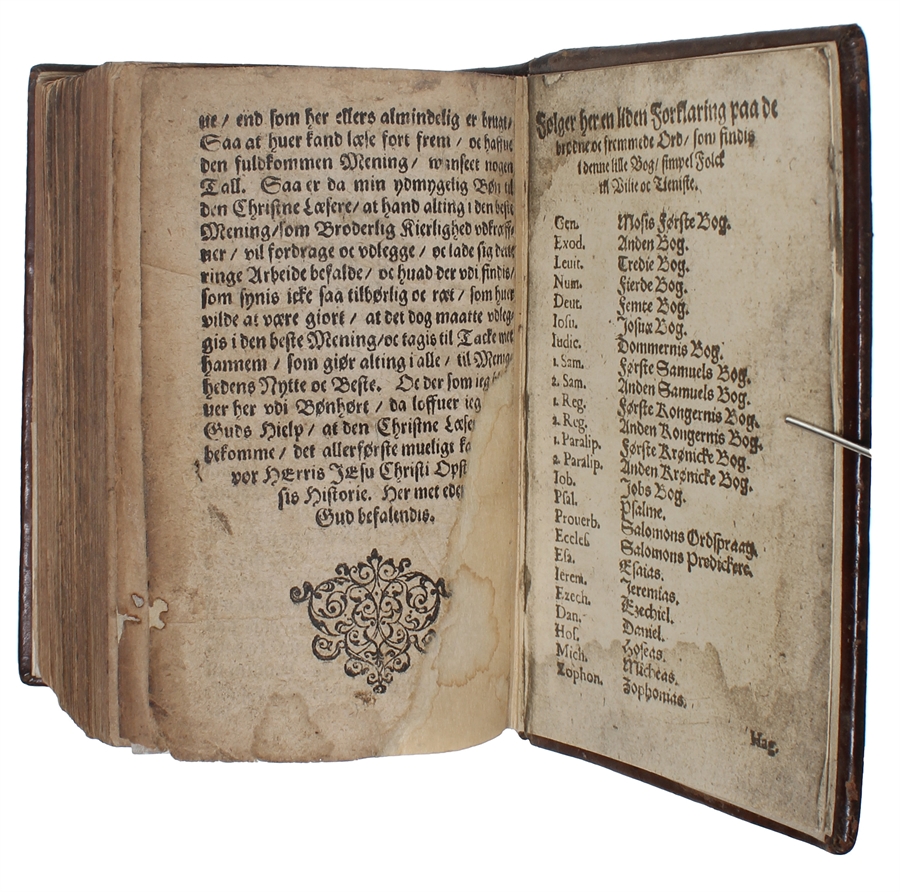 ne / end som her ellers almindelig er brugt/
Saa at huer kand læse fort frem / oc haffue
den fuldkommen Mening / wanseet nogen
Tall. Saa er da min ydmygelig Bøn til
den Christne Læsere/ at hand alting i den beste
Mening/som Broderlig Kierlighed vdkræff-
uer / vil fordrage oc vdlegge / oc lade sig dette
ringe Arbeide befalde / oc huad der vdi findis/
som synis icke saa tilbørlig oc ræt / som huer
vilde at være giort / at det dog maatte vdleg-
gis i den beste Mening/oc tagis til Tacke met
hannem / som giør alting i alle / til Menig-
hedens Nytte oc Beste. Oc der som ieg
uer her vdi Bønhørt / da loffuer ieg
Guds Hielp / at den Christne Læse
bekomme / det allerførste mueligt ka
vor HErris JEsu Christi Opst
sis Historie. Her met eder
Gud befalendis.
Følger her en liden Forklaring paa de
brødne oc fremmede Ord / som findis
i denne lille Bog/ simpel Folck
til Vilie oc Tieniste.
Gen. Mosis Første Bog.
Exod. Anden Bog.
Leuit. Tredie Bog.
Num. Fierde Bog.
Deut. Femte Bog.
Iosu. Josuæ Bog.
Iudic. Dommernis Bog.
1. Sam. Første Samuels Bog.
2. Sam. Anden Samuels Bog.
1. Reg. Første Kongernis Bog.
2. Reg. Anden Kongernis Bog.
1. Paralip. Første Krønicke Bog.
2. Paralip. Anden Krønicke Bog.
Iob. Jobs Bog.
Psal. Psalme.
Prouerb. Salomons Ordspraag.
Eccles. Salomons Predickere.
Esa. Esaias.
Ierem. Jeremias.
Ezech. Ezechiel.
Dan. Daniel.
Hos. Hoseas.
Mich. Micheas.
Zophon. Zophonias.
Hag.